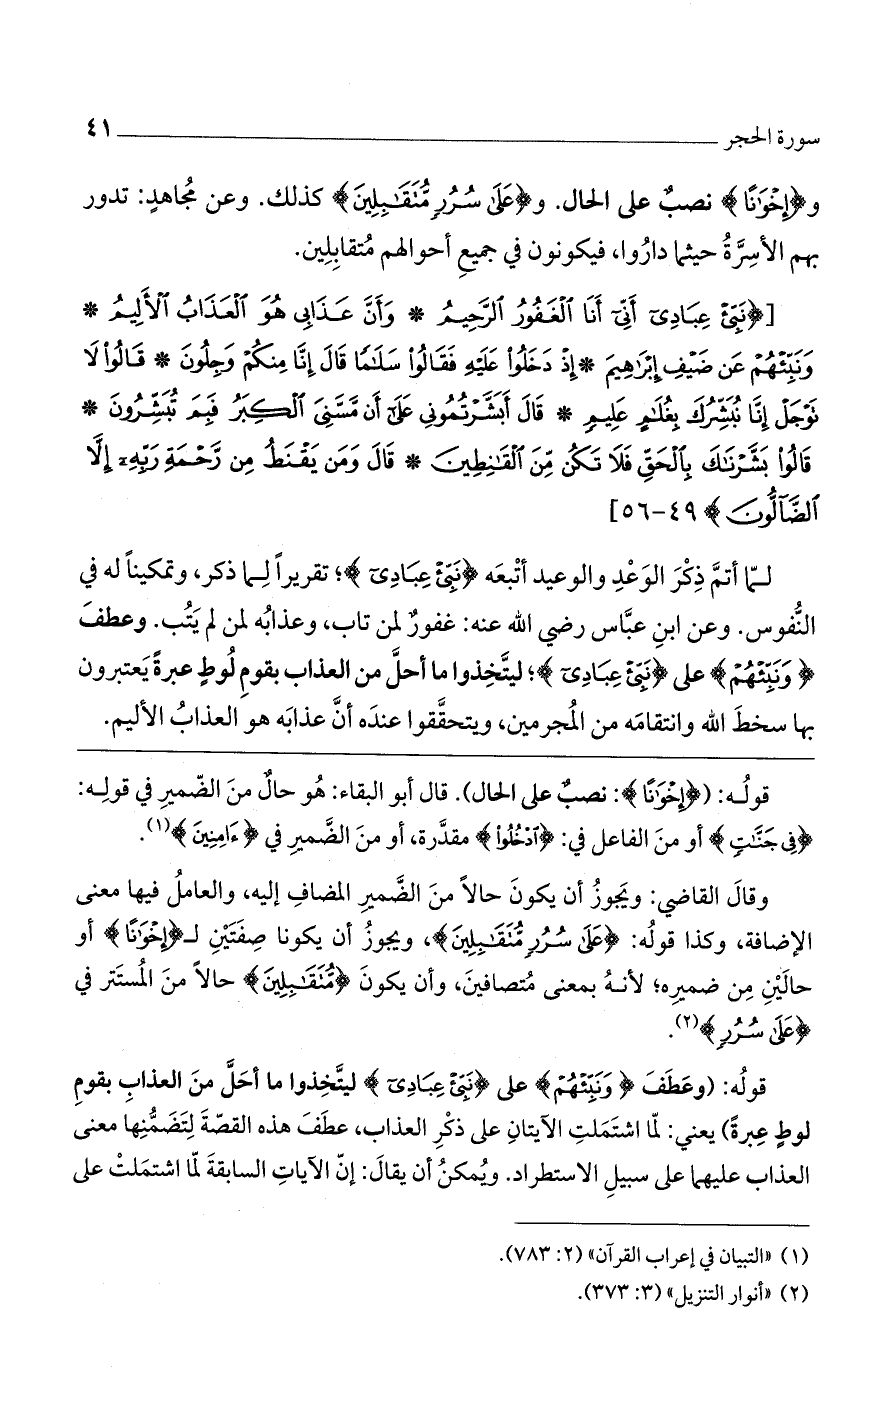 سورة الحجر ٤١
و﴿إِخْوَٰنًا﴾ نصبٌ على الحال. و﴿عَلَىٰ سُرُرٍ مُّتَقَٰبِلِينَ﴾ كذلك. وعن مُجاهدٍ: تدور
بهم الأسِرَّةُ حيثما دارُوا، فيكونون في جميعِ أحوالهم مُتقابِلِين.
[﴿نَبِّئْ عِبَادِىٓ أَنِّىٓ أَنَا ٱلْغَفُورُ ٱلرَّحِيمُ * وَأَنَّ عَذَابِى هُوَ ٱلْعَذَابُ ٱلْأَلِيمُ *
وَنَبِّئْهُمْ عَن ضَيْفِ إِبْرَٰهِيمَ * إِذْ دَخَلُوا۟ عَلَيْهِ فَقَالُوا۟ سَلَٰمًا قَالَ إِنَّا مِنكُمْ وَجِلُونَ * قَالُوا۟ لَا
نَوْجَلْ إِنَّا نُبَشِّرُكَ بِغُلَٰمٍ عَلِيمٍ * قَالَ أَبَشَّرْتُمُونِى عَلَىٰٓ أَن مَّسَّنِىَ ٱلْكِبَرُ فَبِمَ تُبَشِّرُونَ *
قَالُوا۟ بَشَّرْنَٰكَ بِٱلْحَقِّ فَلَا تَكُن مِّنَ ٱلْقَٰنِطِينَ * قَالَ وَمَن يَقْنَطُ مِن رَّحْمَةِ رَبِّهِۦٓ إِلَّا
ٱلضَّآلُّونَ﴾ ٤٩-٥٦]
لـمّا أتمَّ ذِكْرَ الوَعْدِ والوعيد أتْبعَه ﴿نَبِّئْ عِبَادِىٓ﴾؛ تقريراً لِـما ذكر، وتمكيناً له في
النُّفوس. وعن ابنِ عبَّاس رضي الله عنه: غفورٌ لمن تاب، وعذابُه لمن لم يَتُب. وعطفَ
﴿وَنَبِّئْهُمْ﴾ على ﴿نَبِّئْ عِبَادِىٓ﴾؛ ليتَّخِذوا ما أحلَّ من العذاب بقومِ لُوطٍ عبرةً يَعتبرون
بها سخطَ الله وانتقامَه من المُجرمين، ويتحقَّقوا عندَه أنَّ عذابَه هو العذابُ الأليم.
قولُـه: (﴿إِخْوَٰنًا﴾: نصبٌ على الحال). قال أبو البقاء: هُو حالٌ منَ الضّميرِ في قولِـه:
﴿فِى جَنَّٰتٍ﴾ أو منَ الفاعل في: ﴿ٱدْخُلُوا۟﴾ مقدَّرة، أو منَ الضَّميرِ في ﴿ءَامِنِينَ﴾(١).
وقالَ القاضي: ويَجوزُ أن يكونَ حالاً منَ الضَّميرِ المضافِ إليه، والعاملُ فيها معنى
الإضافة، وكذا قولُه: ﴿عَلَىٰ سُرُرٍ مُّتَقَٰبِلِينَ﴾، ويجوزُ أن يكونا صِفتَيْنِ لـ﴿إِخْوَٰنًا﴾ أو
حالَيْنِ مِن ضميرِه؛ لأنـهُ بمعنى مُتصافينَ، وأن يكونَ ﴿مُّتَقَٰبِلِينَ﴾ حالاً منَ المُستَترِ في
﴿عَلَىٰ سُرُرٍ﴾(٢).
قولُه: (وعَطَفَ ﴿وَنَبِّئْهُمْ﴾ على ﴿نَبِّئْ عِبَادِىٓ﴾ ليتَّخِذوا ما أحَلَّ منَ العذابِ بقومِ
لوطٍ عِبرةً) يعني: لمّا اشتَمَلتِ الآيتانِ على ذكْرِ العذاب، عطَفَ هذه القصّةَ لِتَضَمُّنِها معنى
العذاب عليهما على سبيلِ الاستطراد. ويُمكنُ أن يقالَ: إنّ الآياتِ السابقةَ لمّا اشتمَلتْ على
(١) «التبيان في إعراب القرآن» (٢: ٧٨٣).
(٢) «أنوار التنزيل» (٣: ٣٧٣).